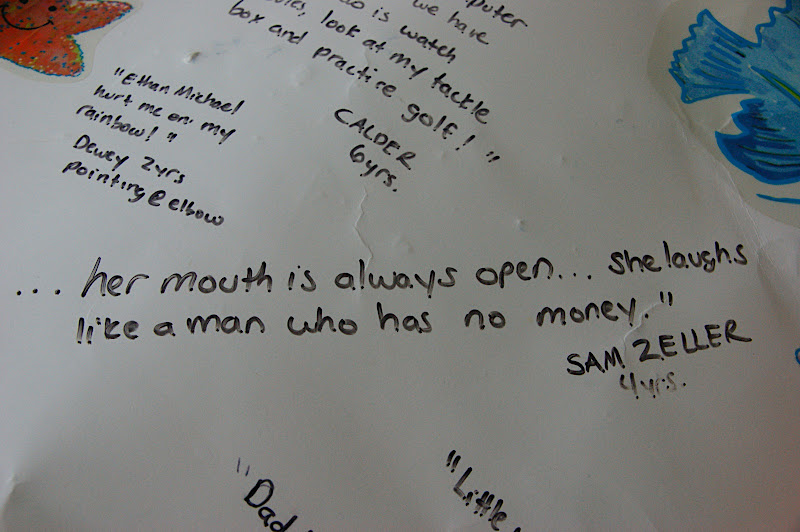 puter
we have
is watch
look at my tackle
box and practice golf!"
CALDER
6yrs.
"Ethan Michael
hurt me on my
rainbow!"
Dewey 2yrs
pointing @ elbow
... her mouth is always open... she laughs
like a man who has no money."
SAM ZELLER
4yrs.
"Dad
"Little